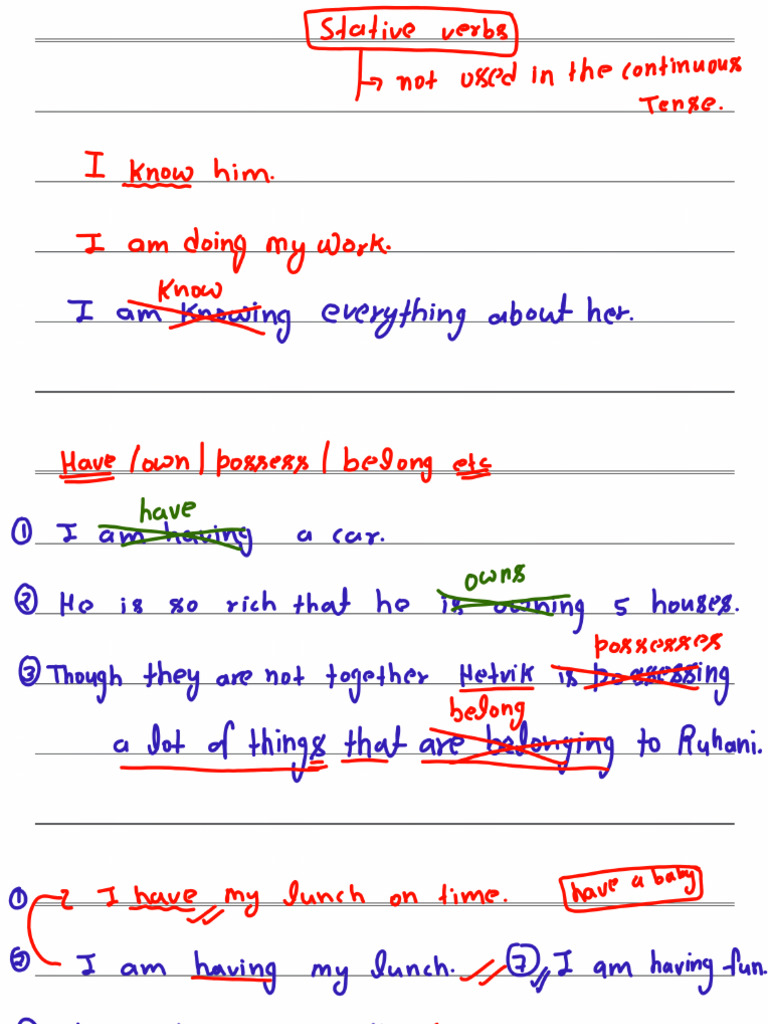 Stative verbs
→ not used in the continuous
Tense.
I know him.
I am doing my work.
know
I am knowing everything about her.
Have / own / possess / belong etc
have
① I am having a car.
owns
② He is so rich that he is owning 5 houses.
possesses
③ Though they are not together Hetvik is possessing
belong
a lot of things that are belonging to Ruhani.
① I have my lunch on time. have a baby
② I am having my lunch. ⑦ I am having fun.